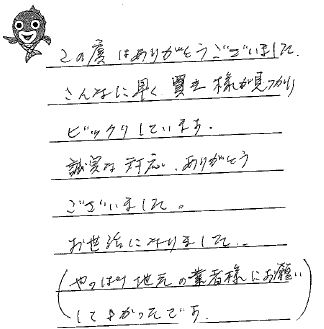 この度はありがとうございました.
こんなに早く買主様が見つかり
ビックリしています.
誠実な対応、ありがとう
ございました。
お世話になりました.
(やっぱり地元の業者様にお願い
してよかったです.)